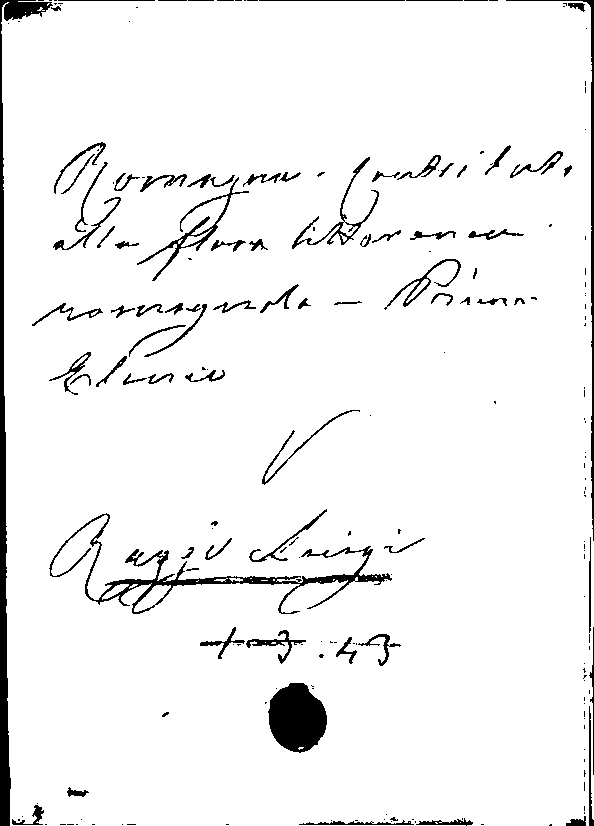 Romagna. Contributo
alla flora littoranea
romagnola — Primo
Elenco
V
Raggi Luigi
1-3.43